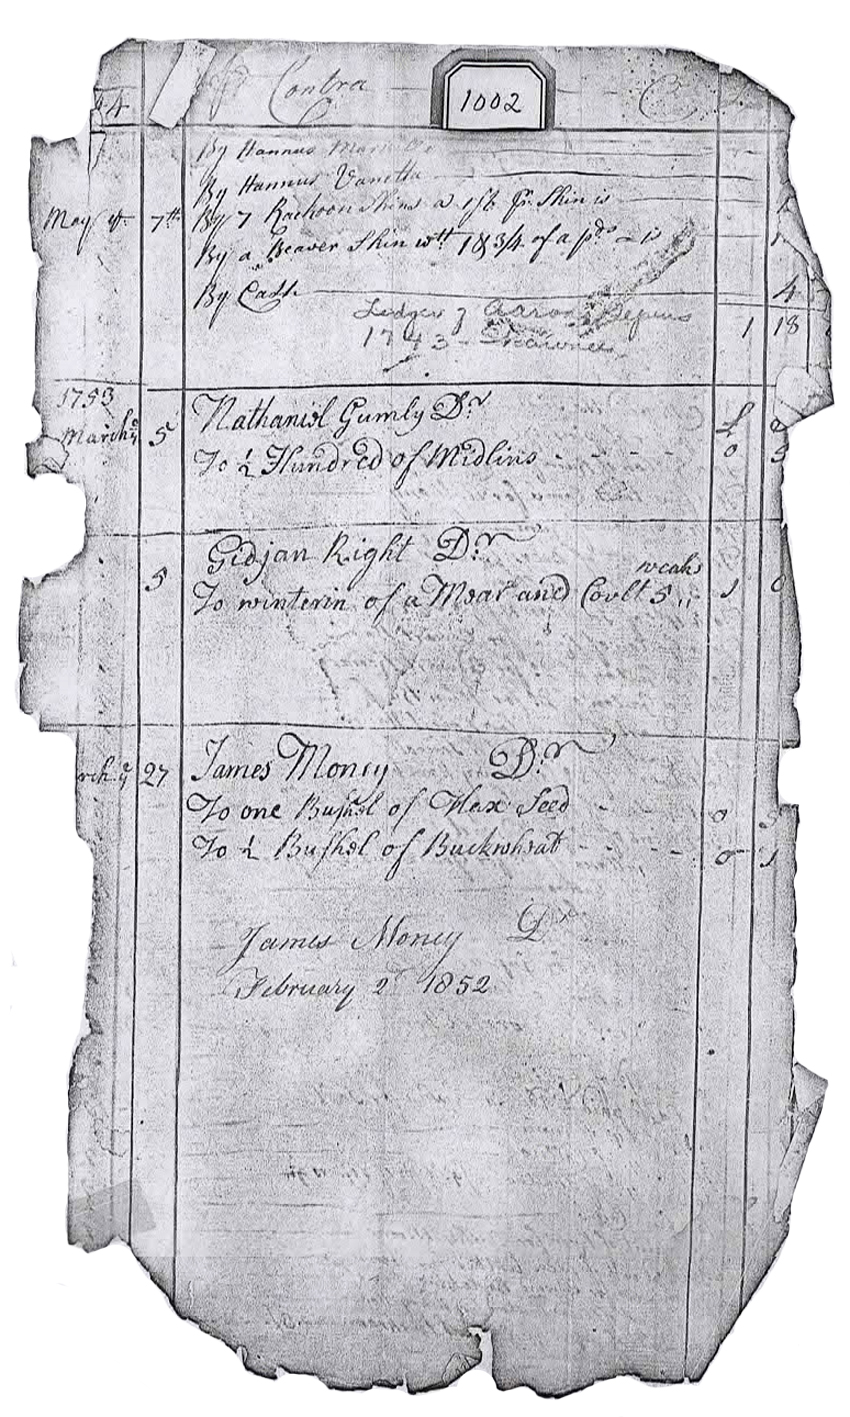 Contra
1002
By Hannus
By Hannus Vanetta
May ye 7th By 7 Rackoon Skins a 1s/6 pr. Skin is
By a Beaver Skin wtt 1 lb 3/4 of a pds is
By Cash 4
Ledger of Aaron Depuis 1 18
1743 - Shawnee
1753
March ye 5 Nathaniel Gumly Dr £
To ½ Hundred of Midlins - - - - - 0 5
5 Gidjan Right Dr
weaks
To winterin of a Mear and Coult 5 " 1 0
rch ye 27 James Money Dr
To one Bushel of Flax Seed - - 0 5
To ½ Bushel of Buckwheat - - - - 0 1
James Money Dr
February 2d 1852